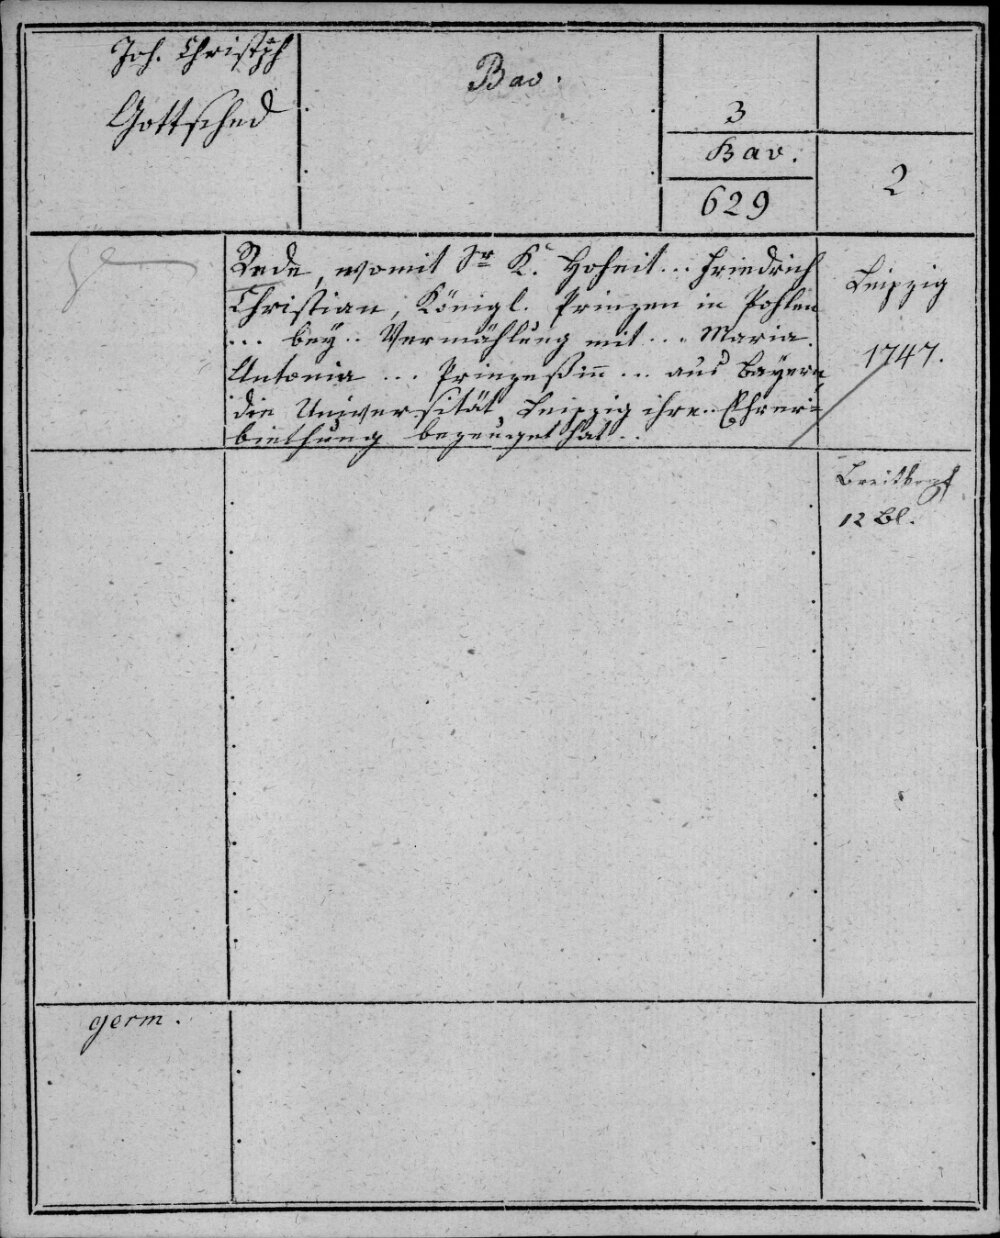 Joh. Christph
Gottsched
Bav.
3
Bav.
629
2
Rede, womit Sr K. Hoheit... Friedrich
Christian, Königl. Prinzen in Pohlen
... bey.. Vermählung mit... Maria.
Antonia ... Prinzeßin̄ ... aus Bayern,
die Universität Leipzig ihre.. Ehrer=
biethung bezeuget hat..
Leipzig
1747.
Breitkopf
12 Bl.
germ.